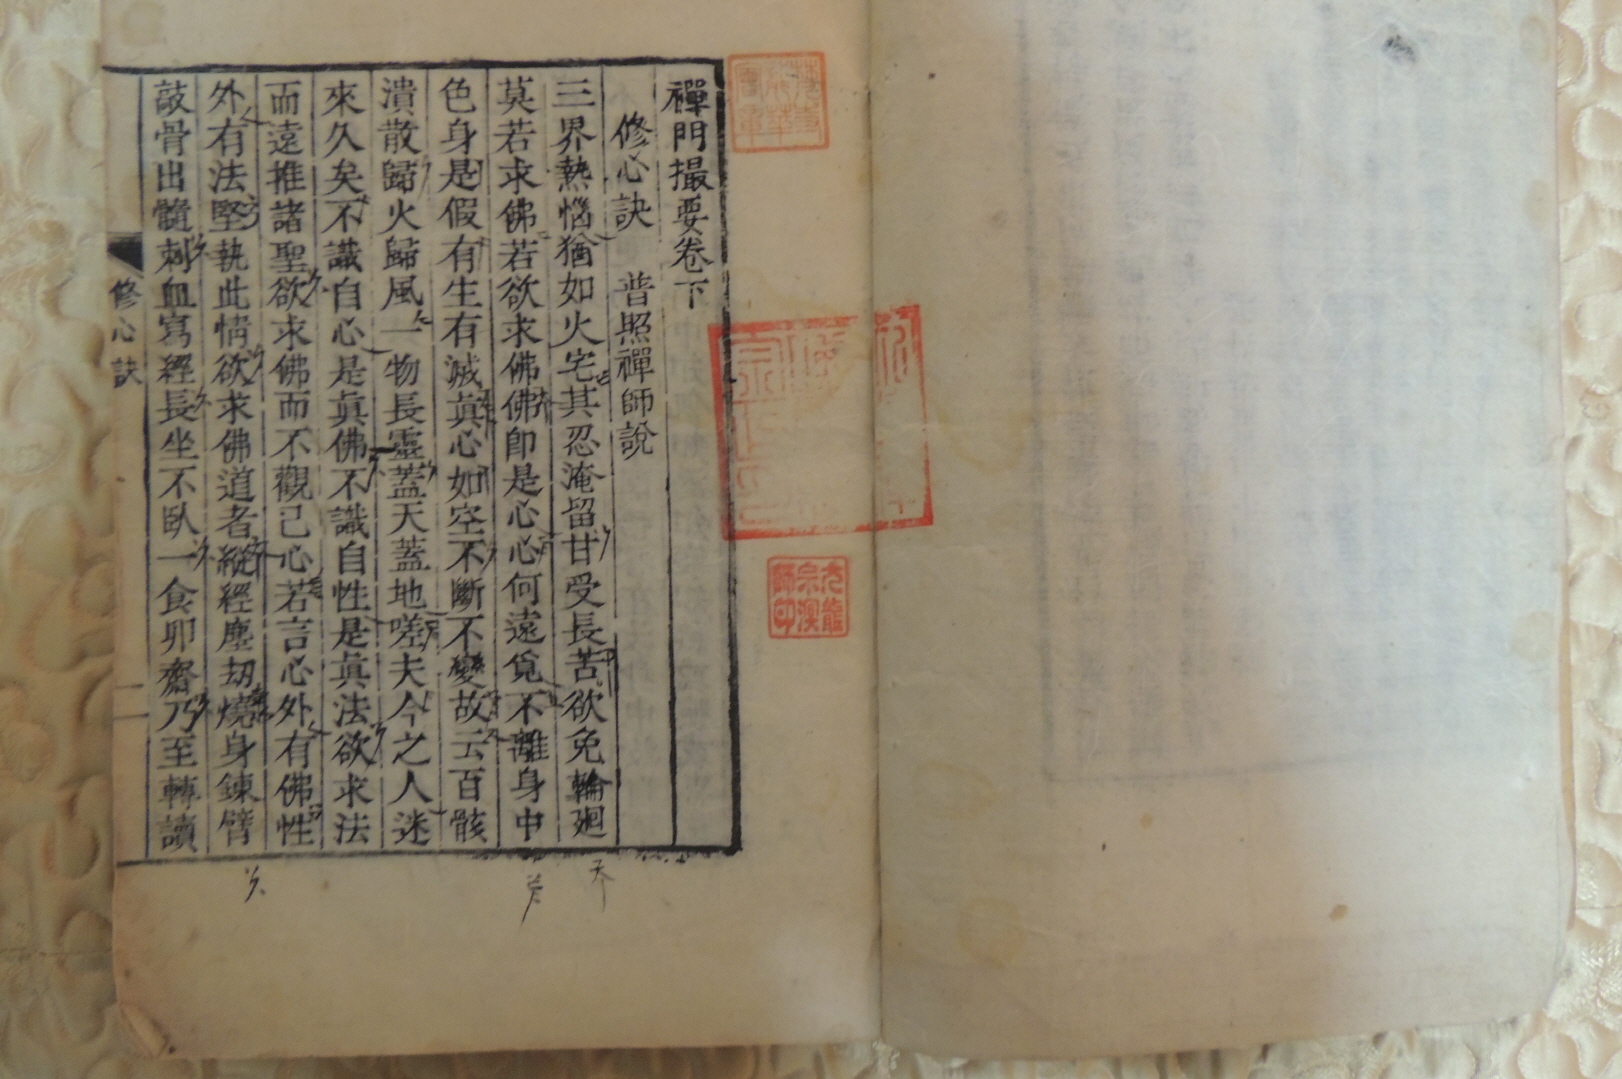 禪門撮要卷下
修心訣　普照禪師說
三界熱惱猶如火宅其忍淹留甘受長苦欲免輪廻
莫若求佛若欲求佛佛卽是心心何遠覓不離身中
色身是假有生有滅眞心如空不斷不變故云百骸
潰散歸火歸風一物長靈蓋天蓋地嗟夫今之人迷
來久矣不識自心是眞佛不識自性是眞法欲求法
而遠推諸聖欲求佛而不觀己心若言心外有佛性
外有法堅執此情欲求佛道者縱經塵劫燒身鍊臂
敲骨出髓刺血寫經長坐不臥一食卯齋乃至轉讀
修心訣